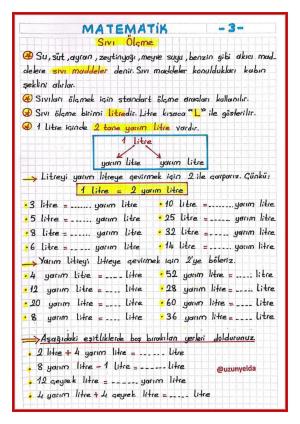 MATEMATİK -3-
Sıvı Ölçme
Su, süt, ayran, zeytinyağı, meyve suyu, benzin gibi akıcı mad-
delere sıvı maddeler denir. Sıvı maddeler konuldukları kabın
şeklini alırlar.
Sıvıları ölçmek için standart ölçme araçları kullanılır.
Sıvı ölçme birimi litredir. Litre kısaca "L" ile gösterilir.
1 litre içinde 2 tane yarım litre vardır.
1 litre
yarım litre yarım litre
Litreyi yarım litreye çevirmek için 2 ile çarparız. Çünkü:
1 litre = 2 yarım litre
3 litre = ....... yarım litre 10 litre = ....... yarım litre
5 litre = ....... yarım litre 25 litre = ....... yarım litre
8 litre = ....... yarım litre 32 litre = ....... yarım litre
6 litre = ....... yarım litre 14 litre = ....... yarım litre
Yarım litreyi litreye çevirmek için 2'ye böleriz.
4 yarım litre = ..... litre 52 yarım litre = ..... litre
12 yarım litre = ..... litre 28 yarım litre = ..... litre
20 yarım litre = ..... litre 60 yarım litre = ..... litre
8 yarım litre = ..... litre 36 yarım litre = ..... litre
Aşağıdaki eşitliklerde boş bırakılan yerleri doldurunuz
2 litre + 4 yarım litre = ..... litre
8 yarım litre - 1 litre = ..... litre
12 çeyrek litre = ..... yarım litre
4 yarım litre + 4 çeyrek litre = ..... litre
@uzunyelda